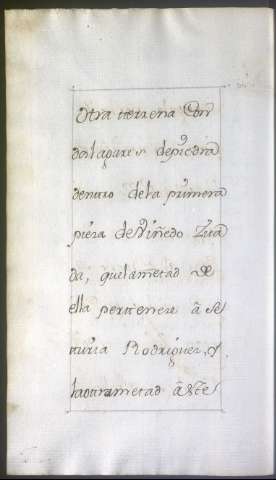 Otra tierrena Con
dos lapares de piedra
dentro de la primera
pieza de Viñedo Zita
da, que la metad de
ella pertenese â Se
turia Rodriguez, y
la otra metad â este